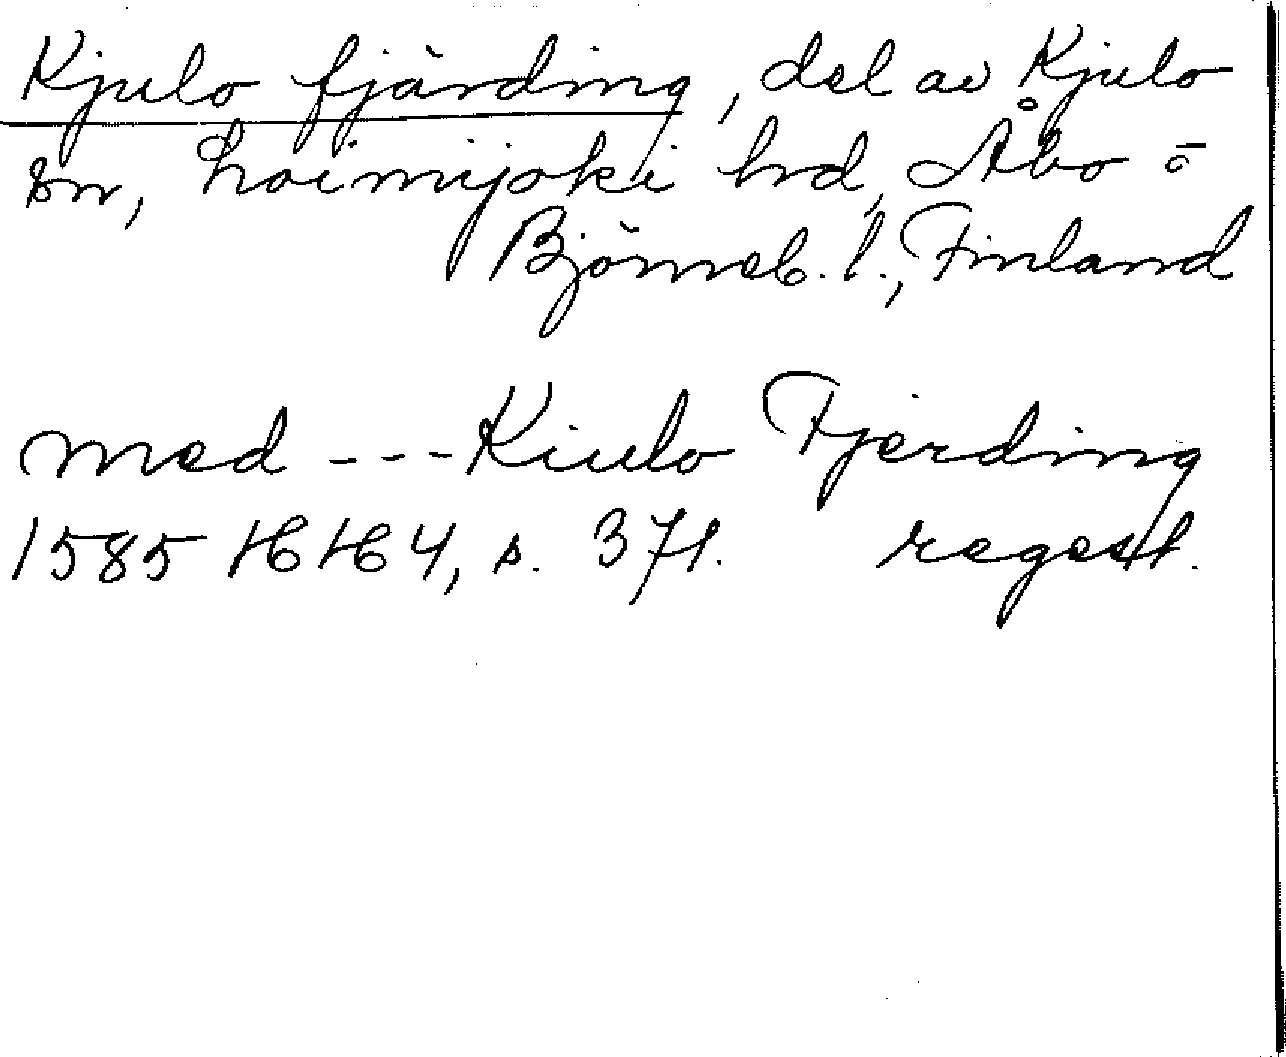 Kjulo fjärding, del av Kjulo
sn, Loimijoki hd, Åbo o
Björneb. l., Finland
med --- Kiulo Fjerding
1585 HH 4, s. 371. regest.